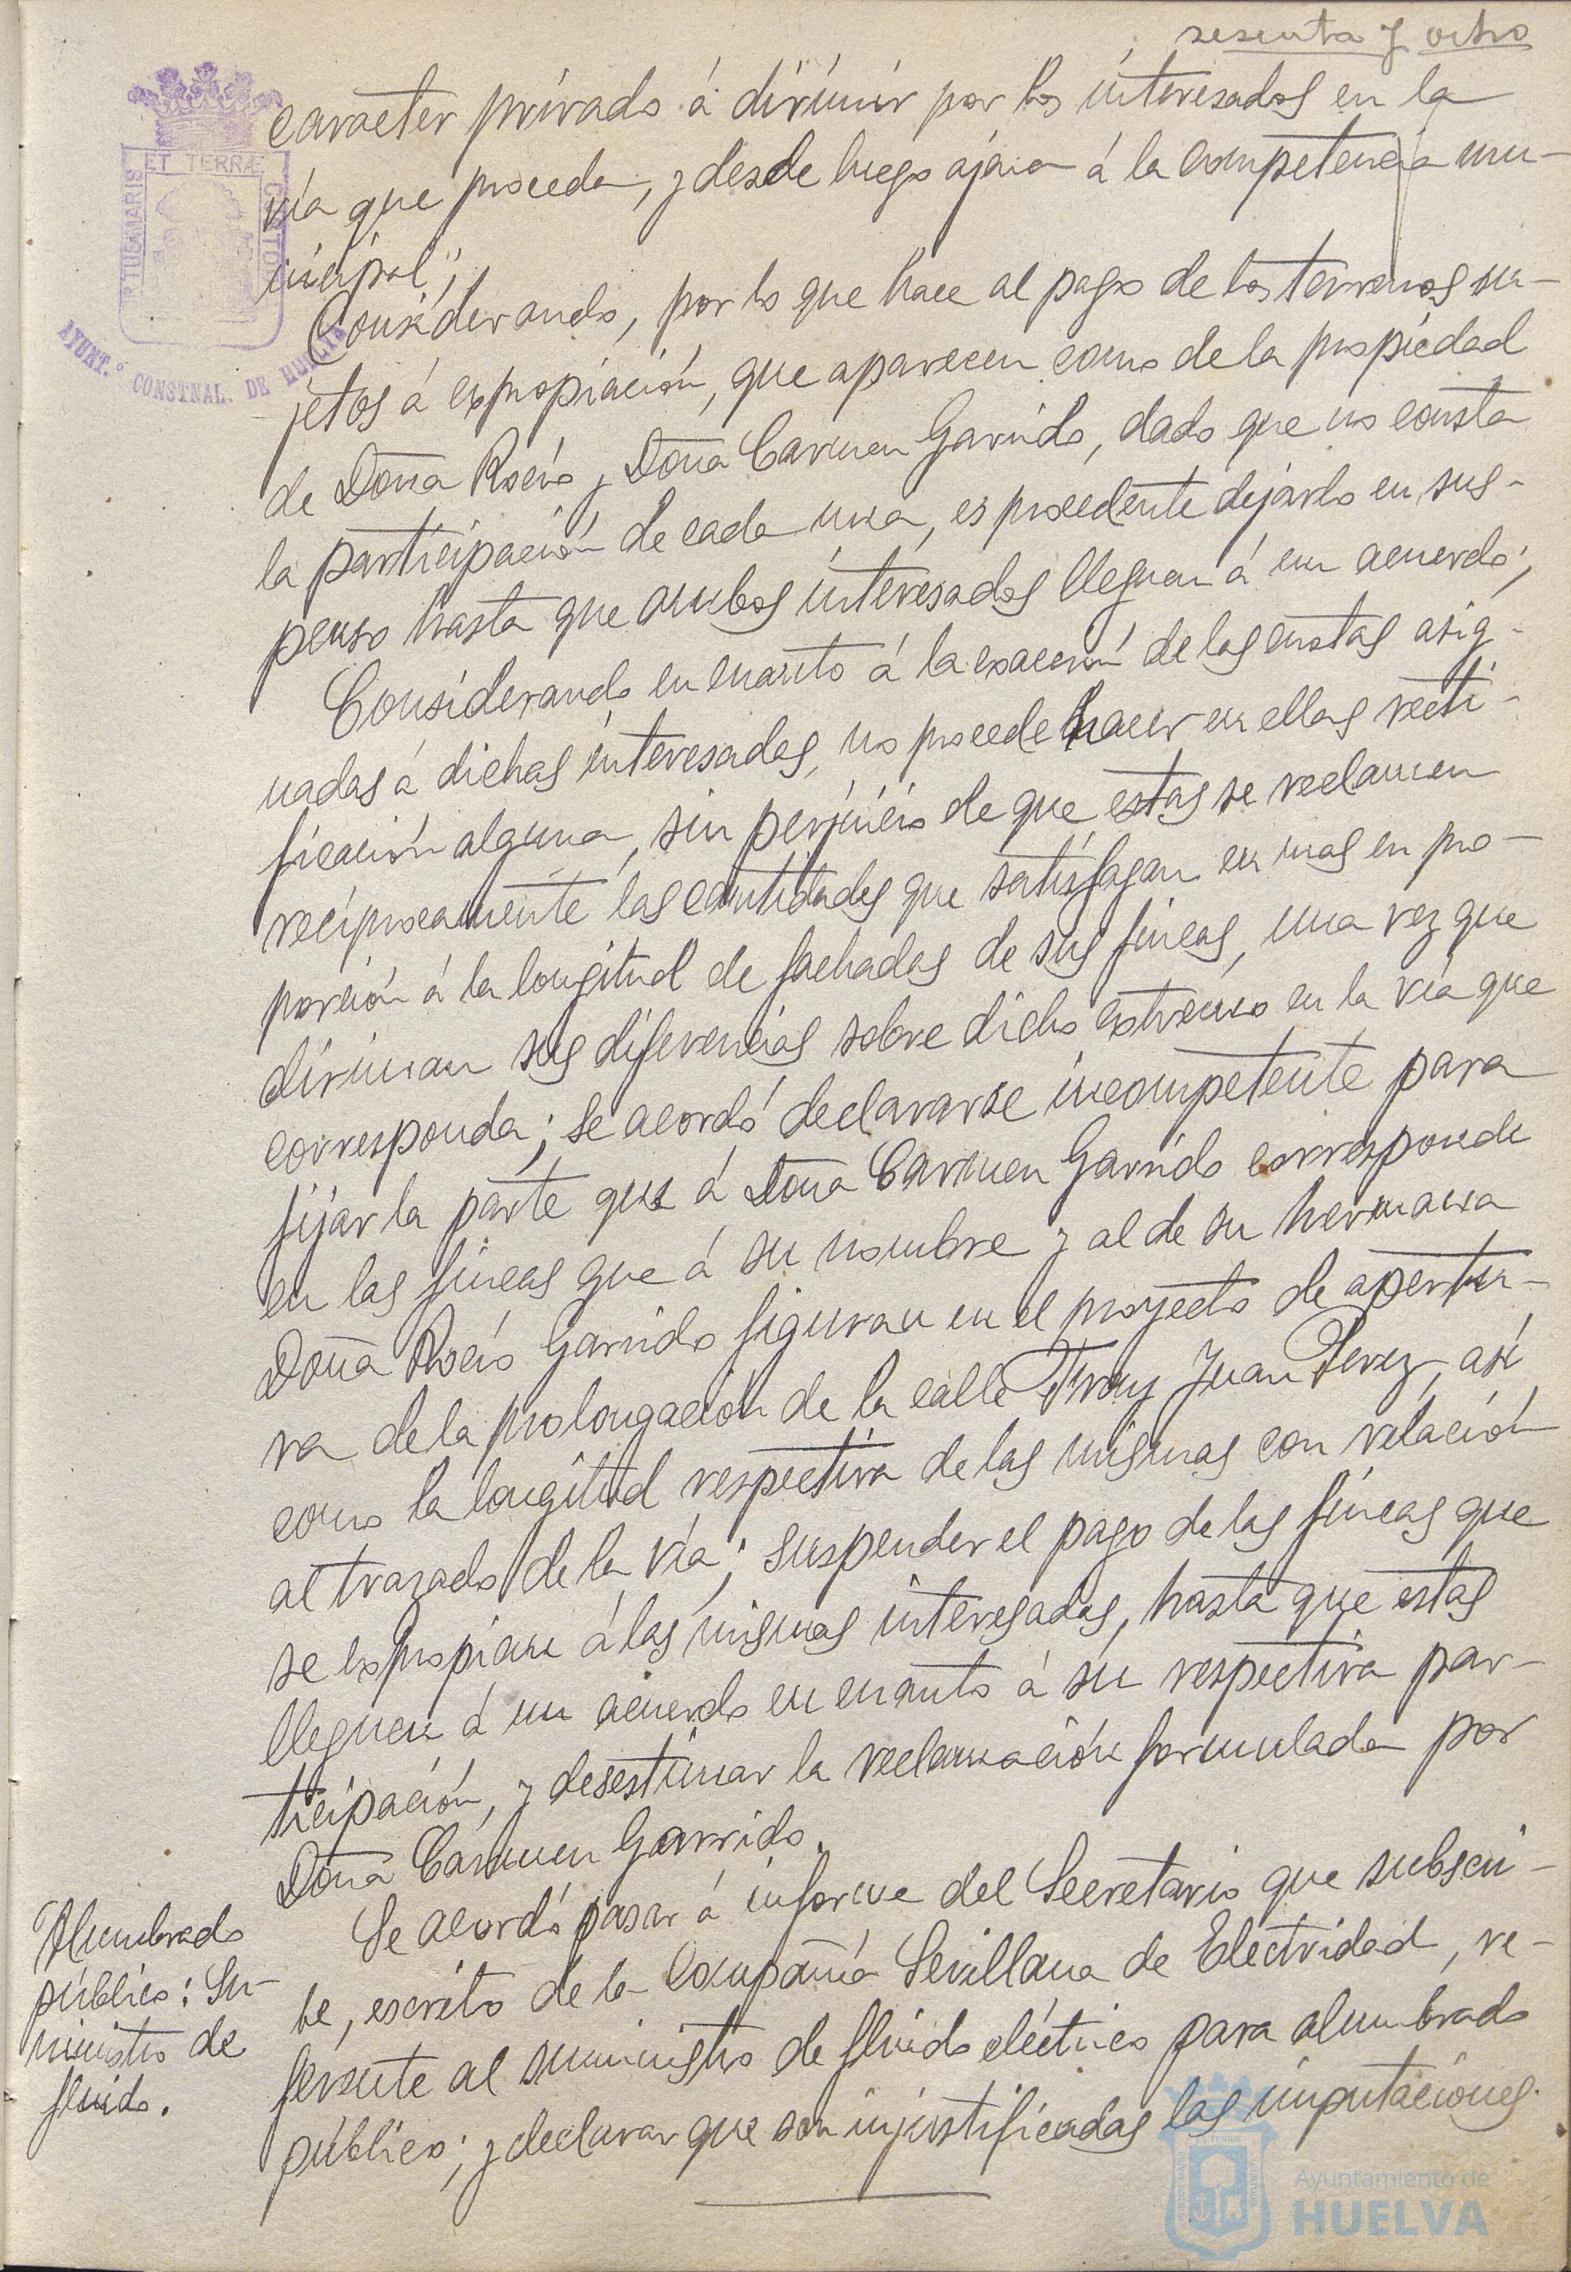 sesenta y ocho
PORTUS MARIS ET TERRÆ CUSTODIA
AYUNT.º CONSTNAL. DE HUELVA
caracter privado á dirimir por los interesados en la
vía que proceda, y desde luego ajena á la competencia mu-
nicipal";
Considerando, por lo que hace al pago de los terrenos su-
jetos á expropiación, que aparecen como de la propiedad
de Doña Rocío y Doña Carmen Garrido, dado que no consta
la participación de cada una, es procedente dejarlo en sus-
penso hasta que ambos interesados lleguen á un acuerdo;
Considerando en cuanto á la exacción de las cuotas asig-
nadas á dichas interesadas, no procede hacer en ellas recti-
ficación alguna, sin perjuicio de que estas se reclamen
reciprocamente las cantidades que satisfagan en mas en pro-
porción á la longitud de fachadas de sus fincas, una vez que
diriman sus diferencias sobre dicho extremo en la vía que
corresponda; se acordó declararse incompetente para
fijar la parte que á Doña Carmen Garrido corresponde
en las fincas que á su nombre y al de su hermana
Doña Rocío Garrido figuran en el proyecto de apertu-
ra de la prolongación de la calle Fray Juan Perez, así
como la longitud respectiva de las mismas con relación
al trazado de la vía; suspender el pago de las fincas que
se expropian á las mismas interesadas, hasta que estas
lleguen á un acuerdo en cuanto á su respectiva par-
ticipación, y desestimar la reclamación formulada por
Doña Carmen Garrido.
Alumbrado
público: Su-
ministro de
fluido.
Se acordó pasar á informe del Secretario que subscri-
be, escrito de la Compañía Sevillana de Electridad, re-
ferente al suministro de fluido eléctrico para alumbrado
público; y declarar que son injustificadas las imputaciones
Ayuntamiento de
HUELVA